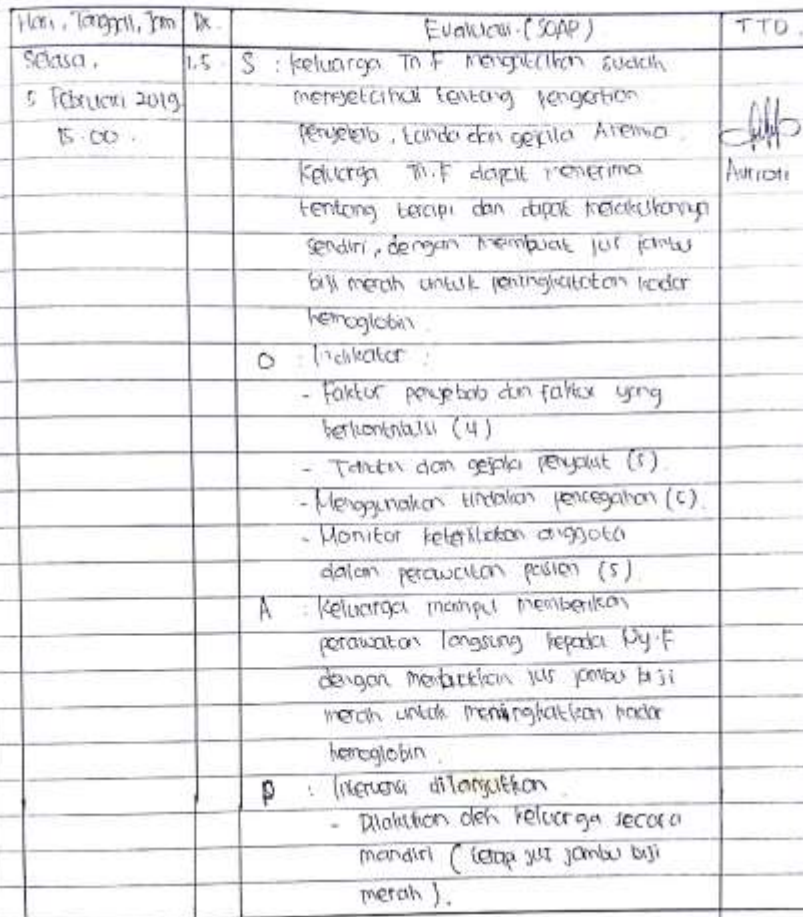 Hari, Tanggal, Jam Dx. Evaluasi (SOAP) TTD.
Selasa, 1.5 S : Keluarga Tn F mengatakan sudah
5 Februari 2019 mengetahui tentang pengertian
15.00. penyebab, tanda dan gejala Anemia.
Keluarga Tn.F dapat menerima
tentang terapi dan dapat melakukannya
sendiri, dengan membuat jus jambu
biji merah untuk peningkatatan kadar
hemoglobin.
O : Indikator :
- Faktor penyebab dan faktor yang
berkontribusi (4)
- Tanda dan gejala penyakit (5)
- Menggunakan tindakan pencegahan (5).
- Monitor keterlibatan anggota
dalam perawatan pasien (5)
A : Keluarga mampu memberikan
perawatan langsung kepada Ny.F
dengan memberikan jus jambu biji
merah untuk meningkatkan kadar
hemoglobin.
P : Intervensi dilanjutkan
- Dilakukan oleh keluarga secara
mandiri (terapi jus jambu biji
merah).